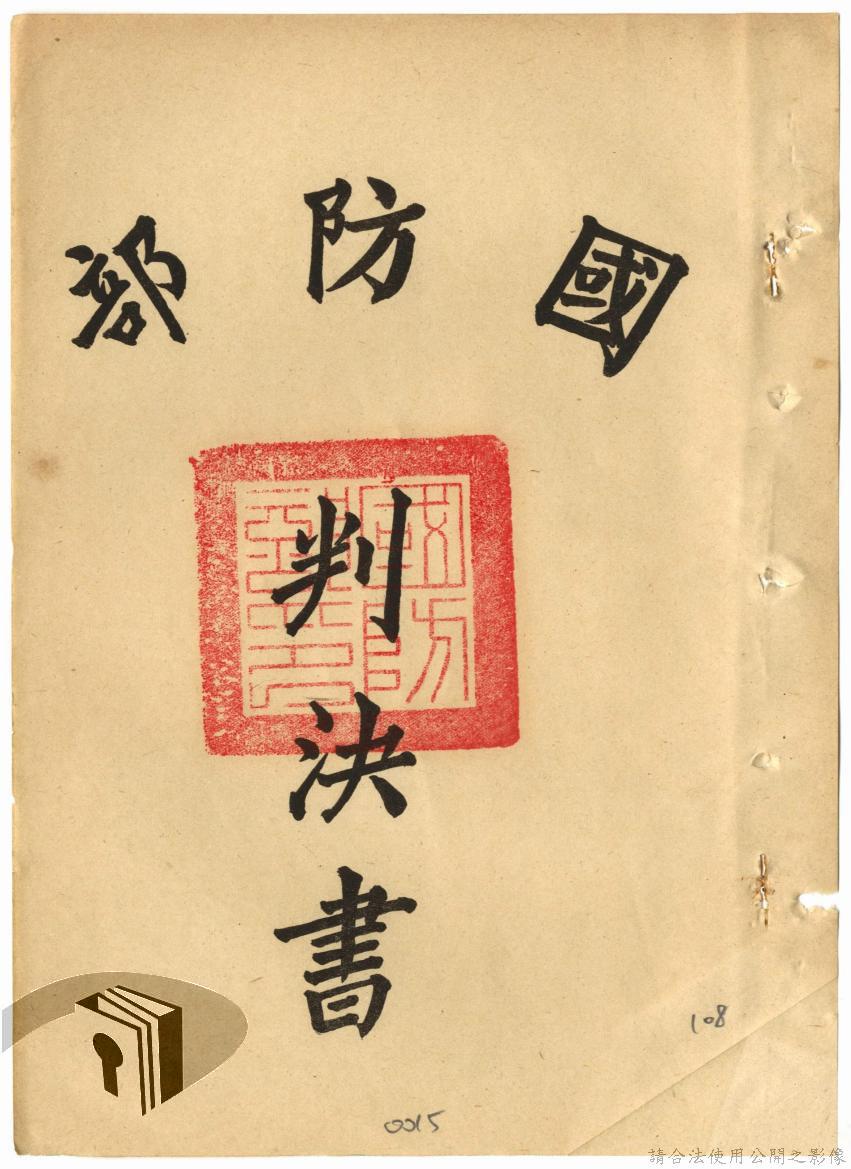 國防部
判決書
108
0015
請合法使用公開之影像